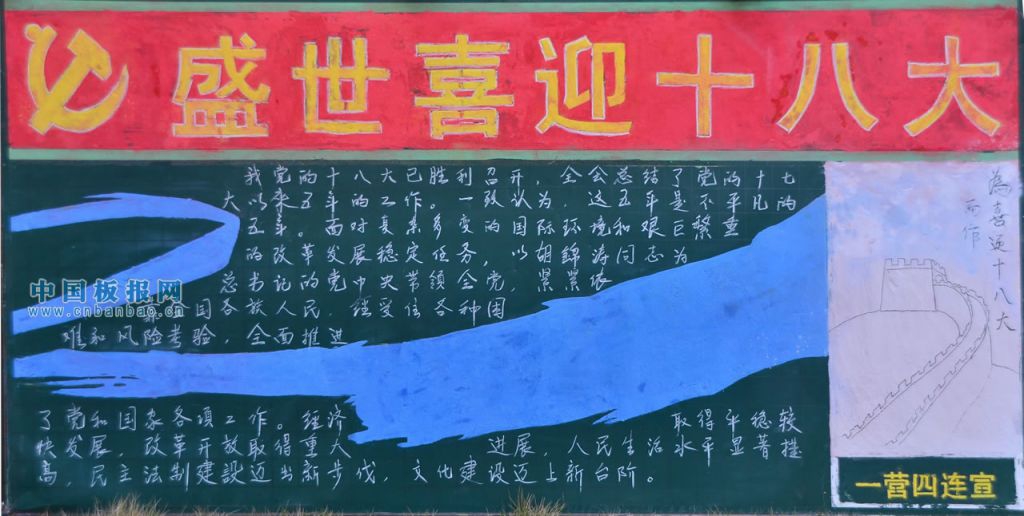 盛世喜迎十八大
我党的十八大已胜利召开，全会总结了党的十七
大以来五年的工作。一致认为，这五年是不平凡的
五年。面对复杂多变的国际环境和艰巨繁重
的改革发展稳定任务，以胡锦涛同志为
总书记的党中央带领全党，紧紧依
国各族人民，经受住各种困
难和风险考验，全面推进
了党和国家各项工作。经济取得平稳较
快发展，改革开放取得重大进展，人民生活水平显著提
高，民主法制建设迈出新步伐，文化建设迈上新台阶。
為喜迎十八大
而作
一营四连宣
中国板报网
www.cnbanbao.cn